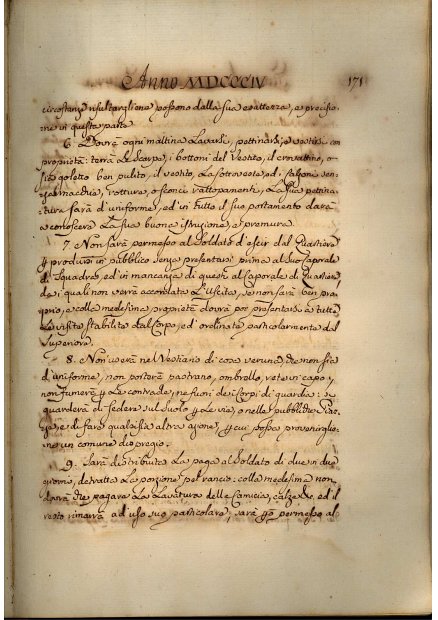 Anno MDCCCIV 171
circostanze risultargliene possono dalla sua esattezza, e precisio-
ne in questa parte.
6. Dovrà ogni mattina Lavarsi, pettinarsi, e vestirsi con
proprietà: terrà Le Scarpe, i bottoni del Vestito, il crovattino, o
sia goletto ben pulito, il vestito, La Sottoveste, ed i calzoni sen-
za macchie, rotture, o sconci rattopamenti, La Sua pettina-
tura sarà d'uniforme, ed in tutto il suo portamento darà
a conoscere La sua buona istruzione, e premura.
7. Non sarà permesso al Soldato d'escir dal Quartiere
p produrvi in pubblico senza presentarsi prima al suo Caporale
di Squadra, ed in mancanza di questi al Caporale di Quartiere,
da i quali non verrà accordata L'Uscita, se non sarà ben pro-
prio, e colla medesima proprietà dovrà poi presentarsi a tutte
Le visite stabilite dal Corpo, ed ordinate particolarmente dal
Superiore.
8. Non userà nel Vestiario di cosa veruna, che non sia
d'uniforme, non porterà pastrano, ombrello, rete in capo,
non fumerà p Le contrade, ne fuori dei Corpi di guardia: si
guarderà di sedere sul Suolo p Le vie, o nelle pubbliche Piaz-
ze, e di fare qualsisia altra azione, p cui possa provenirglie-
ne un comune dispregio.
9. Sarà distribuita La paga al Soldato di due in due
giorni, detratta La porzione pel rancio: colla medesima non
dovrà che pagare La Lavatura delle Camicie, calze &c. ed il
resto rimarrà ad uso suo particolare, sarà però permesso al